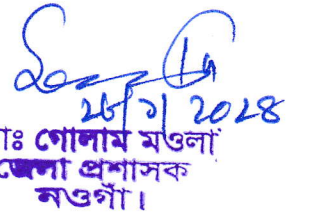 ১ ২০২৪
াঃ গোলাম মওলা
জেলা প্রশাসক
নওগাঁ।